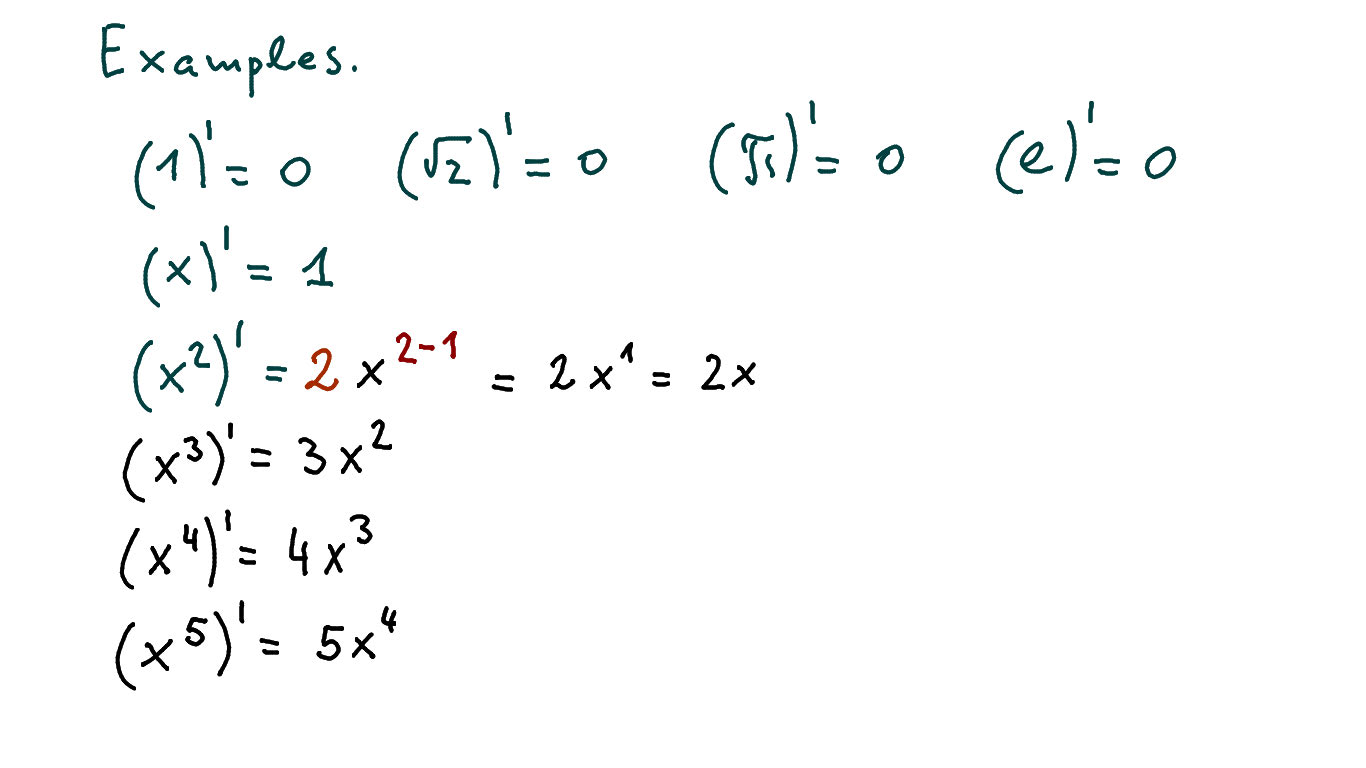 Examples.
(1)' = 0 (√2)' = 0 (π)' = 0 (e)' = 0
(x)' = 1
(x²)' = 2x²⁻¹ = 2x¹ = 2x
(x³)' = 3x²
(x⁴)' = 4x³
(x⁵)' = 5x⁴